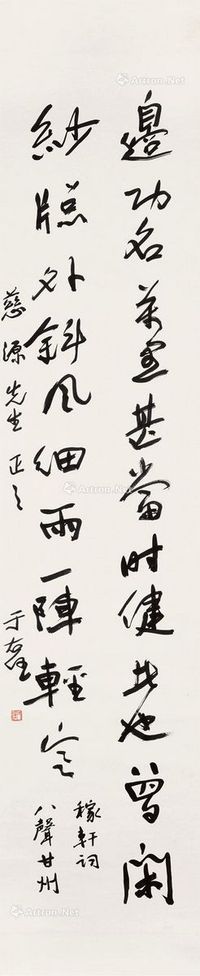 邊功名萬里甚當時健者也曾閑
紗牕外斜風細雨一陣輕寒
稼軒詞
八聲甘州
慈源先生正之
于右任
Artron.Net
Artron.Net
Artron.Net